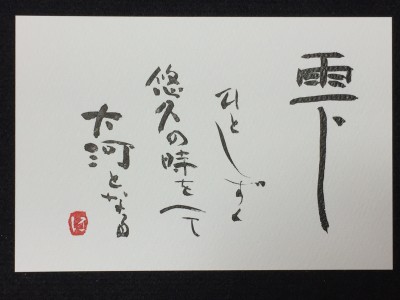 雫
ひとしずく
悠久の時をへて
大河となる